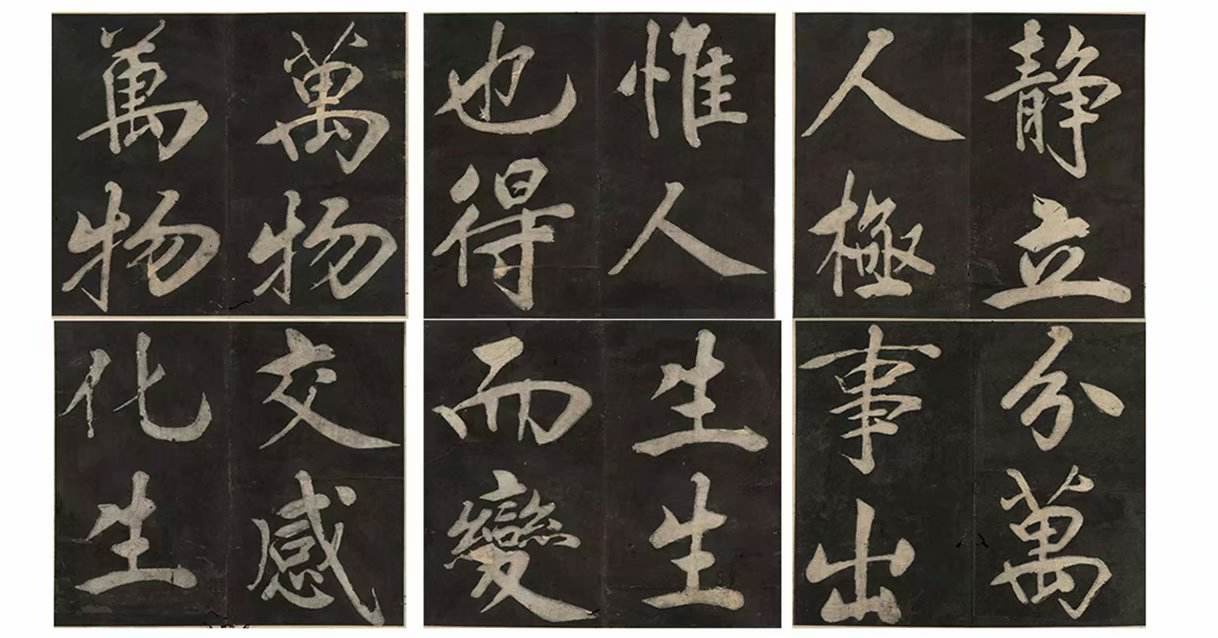 静立
人極
惟人
也得
萬物
萬物
分萬
事出
生生
而變
交感
化生